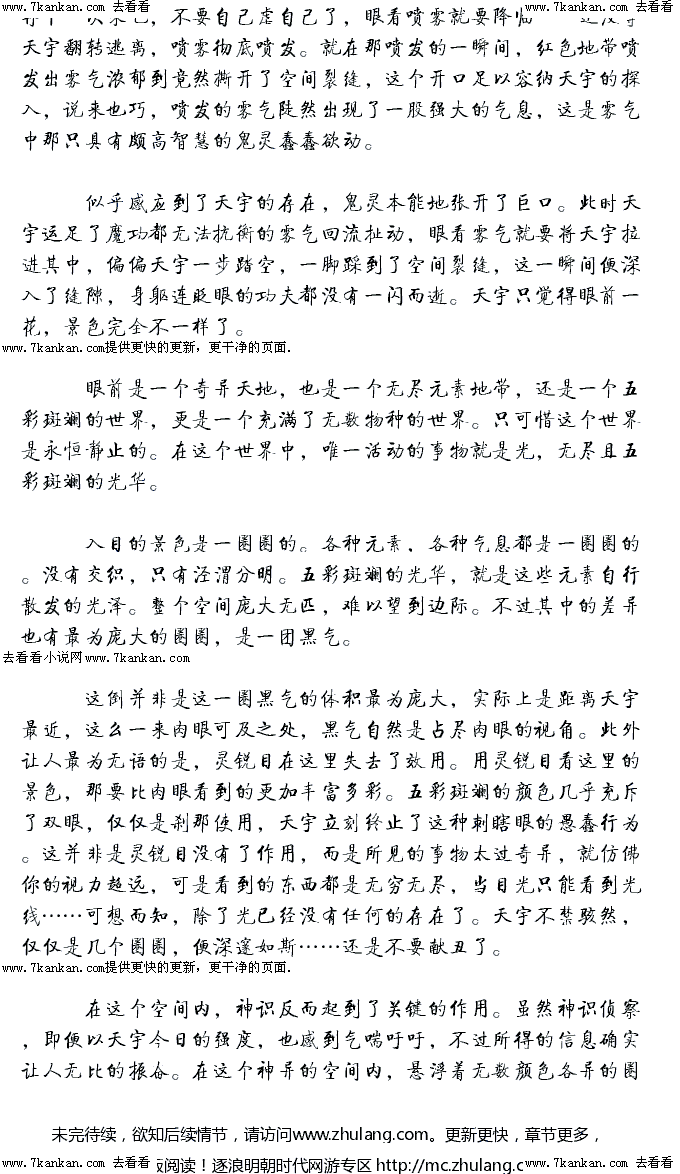 www.7kankan.com 去看看 去看看 www.7kankan.com 去看看
天宇翻转逃离，喷雾彻底喷发。就在那喷发的一瞬间，红色地带喷
发出雾气浓郁到竟然撕开了空间裂缝，这个开口足以容纳天宇的探
入，说来也巧，喷发的雾气陡然出现了一股强大的气息，这是雾气
中那只具有颇高智慧的鬼灵蠢蠢欲动。
似乎感应到了天宇的存在，鬼灵本能地张开了巨口。此时天
宇运足了魔功都无法抗衡的雾气回流扯动，眼看雾气就要将天宇拉
进其中，偏偏天宇一步踏空，一脚踩到了空间裂缝，这一瞬间便深
入了缝隙，身躯连眨眼的功夫都没有一闪而逝。天宇只觉得眼前一
花，景色完全不一样了。
www.7kankan.com提供更快的更新，更干净的页面.
眼前是一个奇异天地，也是一个无尽元素地带，还是一个五
彩斑斓的世界，更是一个充满了无数物种的世界。只可惜这个世界
是永恒静止的。在这个世界中，唯一活动的事物就是光，无尽且五
彩斑斓的光华。
入目的景色是一圈圈的。各种元素，各种气息都是一圈圈的
。没有交织，只有泾渭分明。五彩斑斓的光华，就是这些元素自行
散发的光泽。整个空间庞大无匹，难以望到边际。不过其中的差异
也有最为庞大的圈圈，是一团黑气。
去看看小说网www.7kankan.com
这倒并非是这一圈黑气的体积最为庞大，实际上是距离天宇
最近，这么一来肉眼可及之处，黑气自然是占尽肉眼的视角。此外
让人最为无语的是，灵锐目在这里失去了效用。用灵锐目看这里的
景色，那要比肉眼看到的更加丰富多彩。五彩斑斓的颜色几乎充斥
了双眼，仅仅是刹那使用，天宇立刻终止了这种刺瞎眼的愚蠢行为
。这并非是灵锐目没有了作用，而是所见的事物太过奇异，就仿佛
你的视力超远，可是看到的东西都是无穷无尽，当目光只能看到光
线……可想而知，除了光已经没有任何的存在了。天宇不禁骇然，
仅仅是几个圈圈，便深邃如斯……还是不要献丑了。
www.7kankan.com提供更快的更新，更干净的页面.
在这个空间内，神识反而起到了关键的作用。虽然神识侦察
，即便以天宇今日的强度，也感到气喘吁吁，不过所得的信息确实
让人无比的振奋。在这个神异的空间内，悬浮着无数颜色各异的圈
未完待续，欲知后续情节，请访问www.zhulang.com。更新更快，章节更多，
www.7kankan.com 去看看 阅读！逐浪明朝时代网游专区 http://mc.zhulang.co www.7kankan.com 去看看